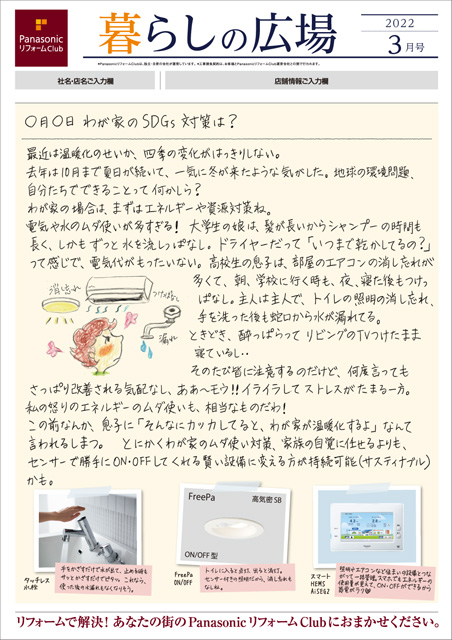 Panasonic
リフォームClub
暮らしの広場
2022
3月号
※PanasonicリフォームClubは、独立・自営の会社が運営しています。※工事請負契約は、お客様とPanasonicリフォームClub運営会社との間で行われます。
社名・店名ご入力欄
店舗情報ご入力欄
〇月〇日 わが家のSDGs対策は?
最近は温暖化のせいか、四季の変化がはっきりしない。
去年は10月まで夏日が続いて、一気に冬が来たような気がした。地球の環境問題、
自分たちでできることって何かしら?
わが家の場合は、まずはエネルギーや資源対策ね。
電気や水のムダ使いが多すぎる! 大学生の娘は、髪が長いからシャンプーの時間も
長く、しかもずっと水を流しっぱなし。ドライヤーだって「いつまで乾かしてるの?」
って感じで、電気代がもったいない。高校生の息子は、部屋のエアコンの消し忘れが
多くて、朝、学校に行く時も、夜、寝た後もつけっ
ぱなし。主人は主人で、トイレの照明の消し忘れ、
手を洗った後も蛇口から水が漏れてる。
ときどき、酔っぱらってリビングのTVつけたまま
寝ているし・・
消忘れ
つけっぱなし
漏れ
そのたび皆に注意するのだけど、何度言っても
さっぱり改善される気配なし、ああ〜モウ!!イライラしてストレスがたまる一方。
私の怒りのエネルギーのムダ使いも、相当なものだわ!
この前なんか、息子に「そんなにカッカしてると、わが家が温暖化するよ」なんて
言われるしまつ。 とにかくわが家のムダ使い対策、家族の自覚に任せるよりも、
センサーで勝手にON・OFFしてくれる賢い設備に変える方が持続可能(サスティナブル)
かも。
タッチレス
水栓
手をかざすだけで水が出て、止める時も
サッとかざすだけでピタッ。これなら、
使った後の水漏れもなくなりそう。
FreePa
高気密SB
ON/OFF型
FreePa
ON/OFF
トイレに入ると点灯、出ると消灯。
センサー付きの照明だから、消し忘れも
なしね。
スマート
HEMS
AiSEG2
照明やエアコンなど住まいの設備とつな
がって一括管理。スマホでもエネルギーの
使用量が見えて、ON・OFFができるから
節電がラク♡
リフォームで解決! あなたの街のPanasonicリフォームClubにおまかせください。